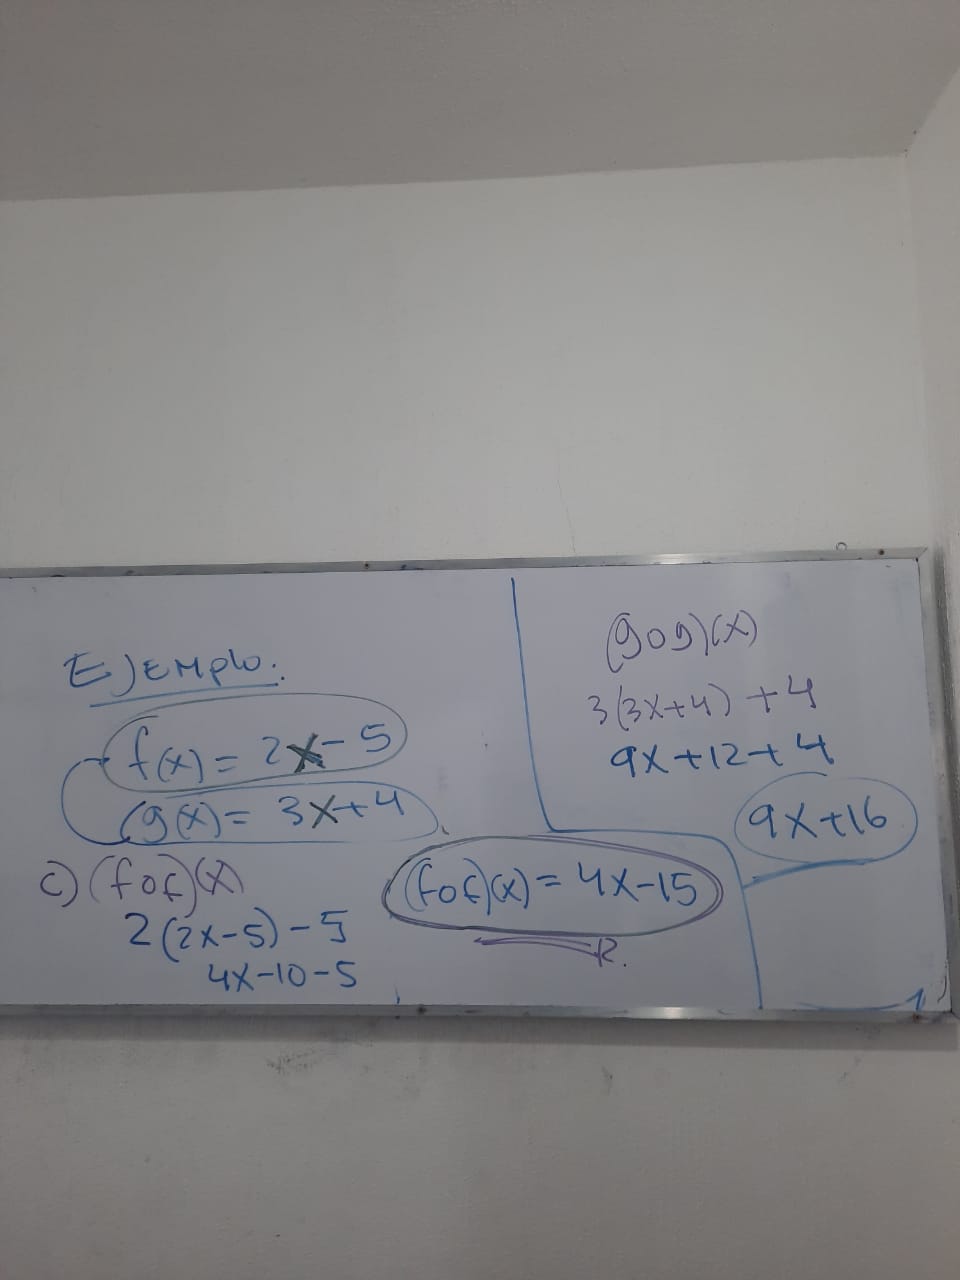 Ejemplo.
f(x) = 2x - 5
g(x) = 3x+4
c) (fof)(x)
2(2x-5) - 5
4x-10-5
(fof)(x) = 4x-15
R.
(gog)(x)
3(3x+4) +4
9x+12+4
9x+16